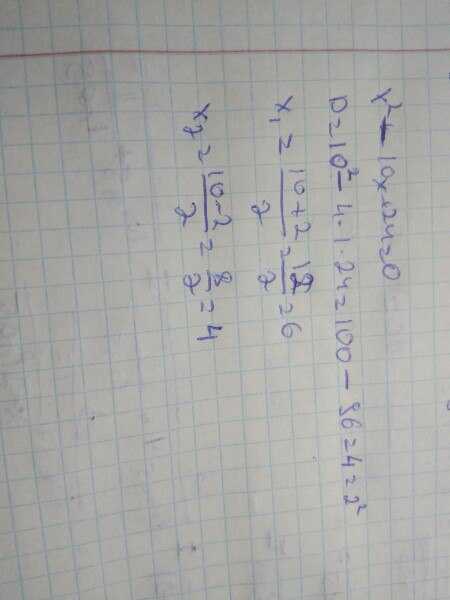 x² - 10x+24=0
D=10² - 4·1·24=100 - 96=4=2²
x₁ = 10+2/2 = 12/2 = 6
x₂ = 10-2/2 = 8/2 = 4